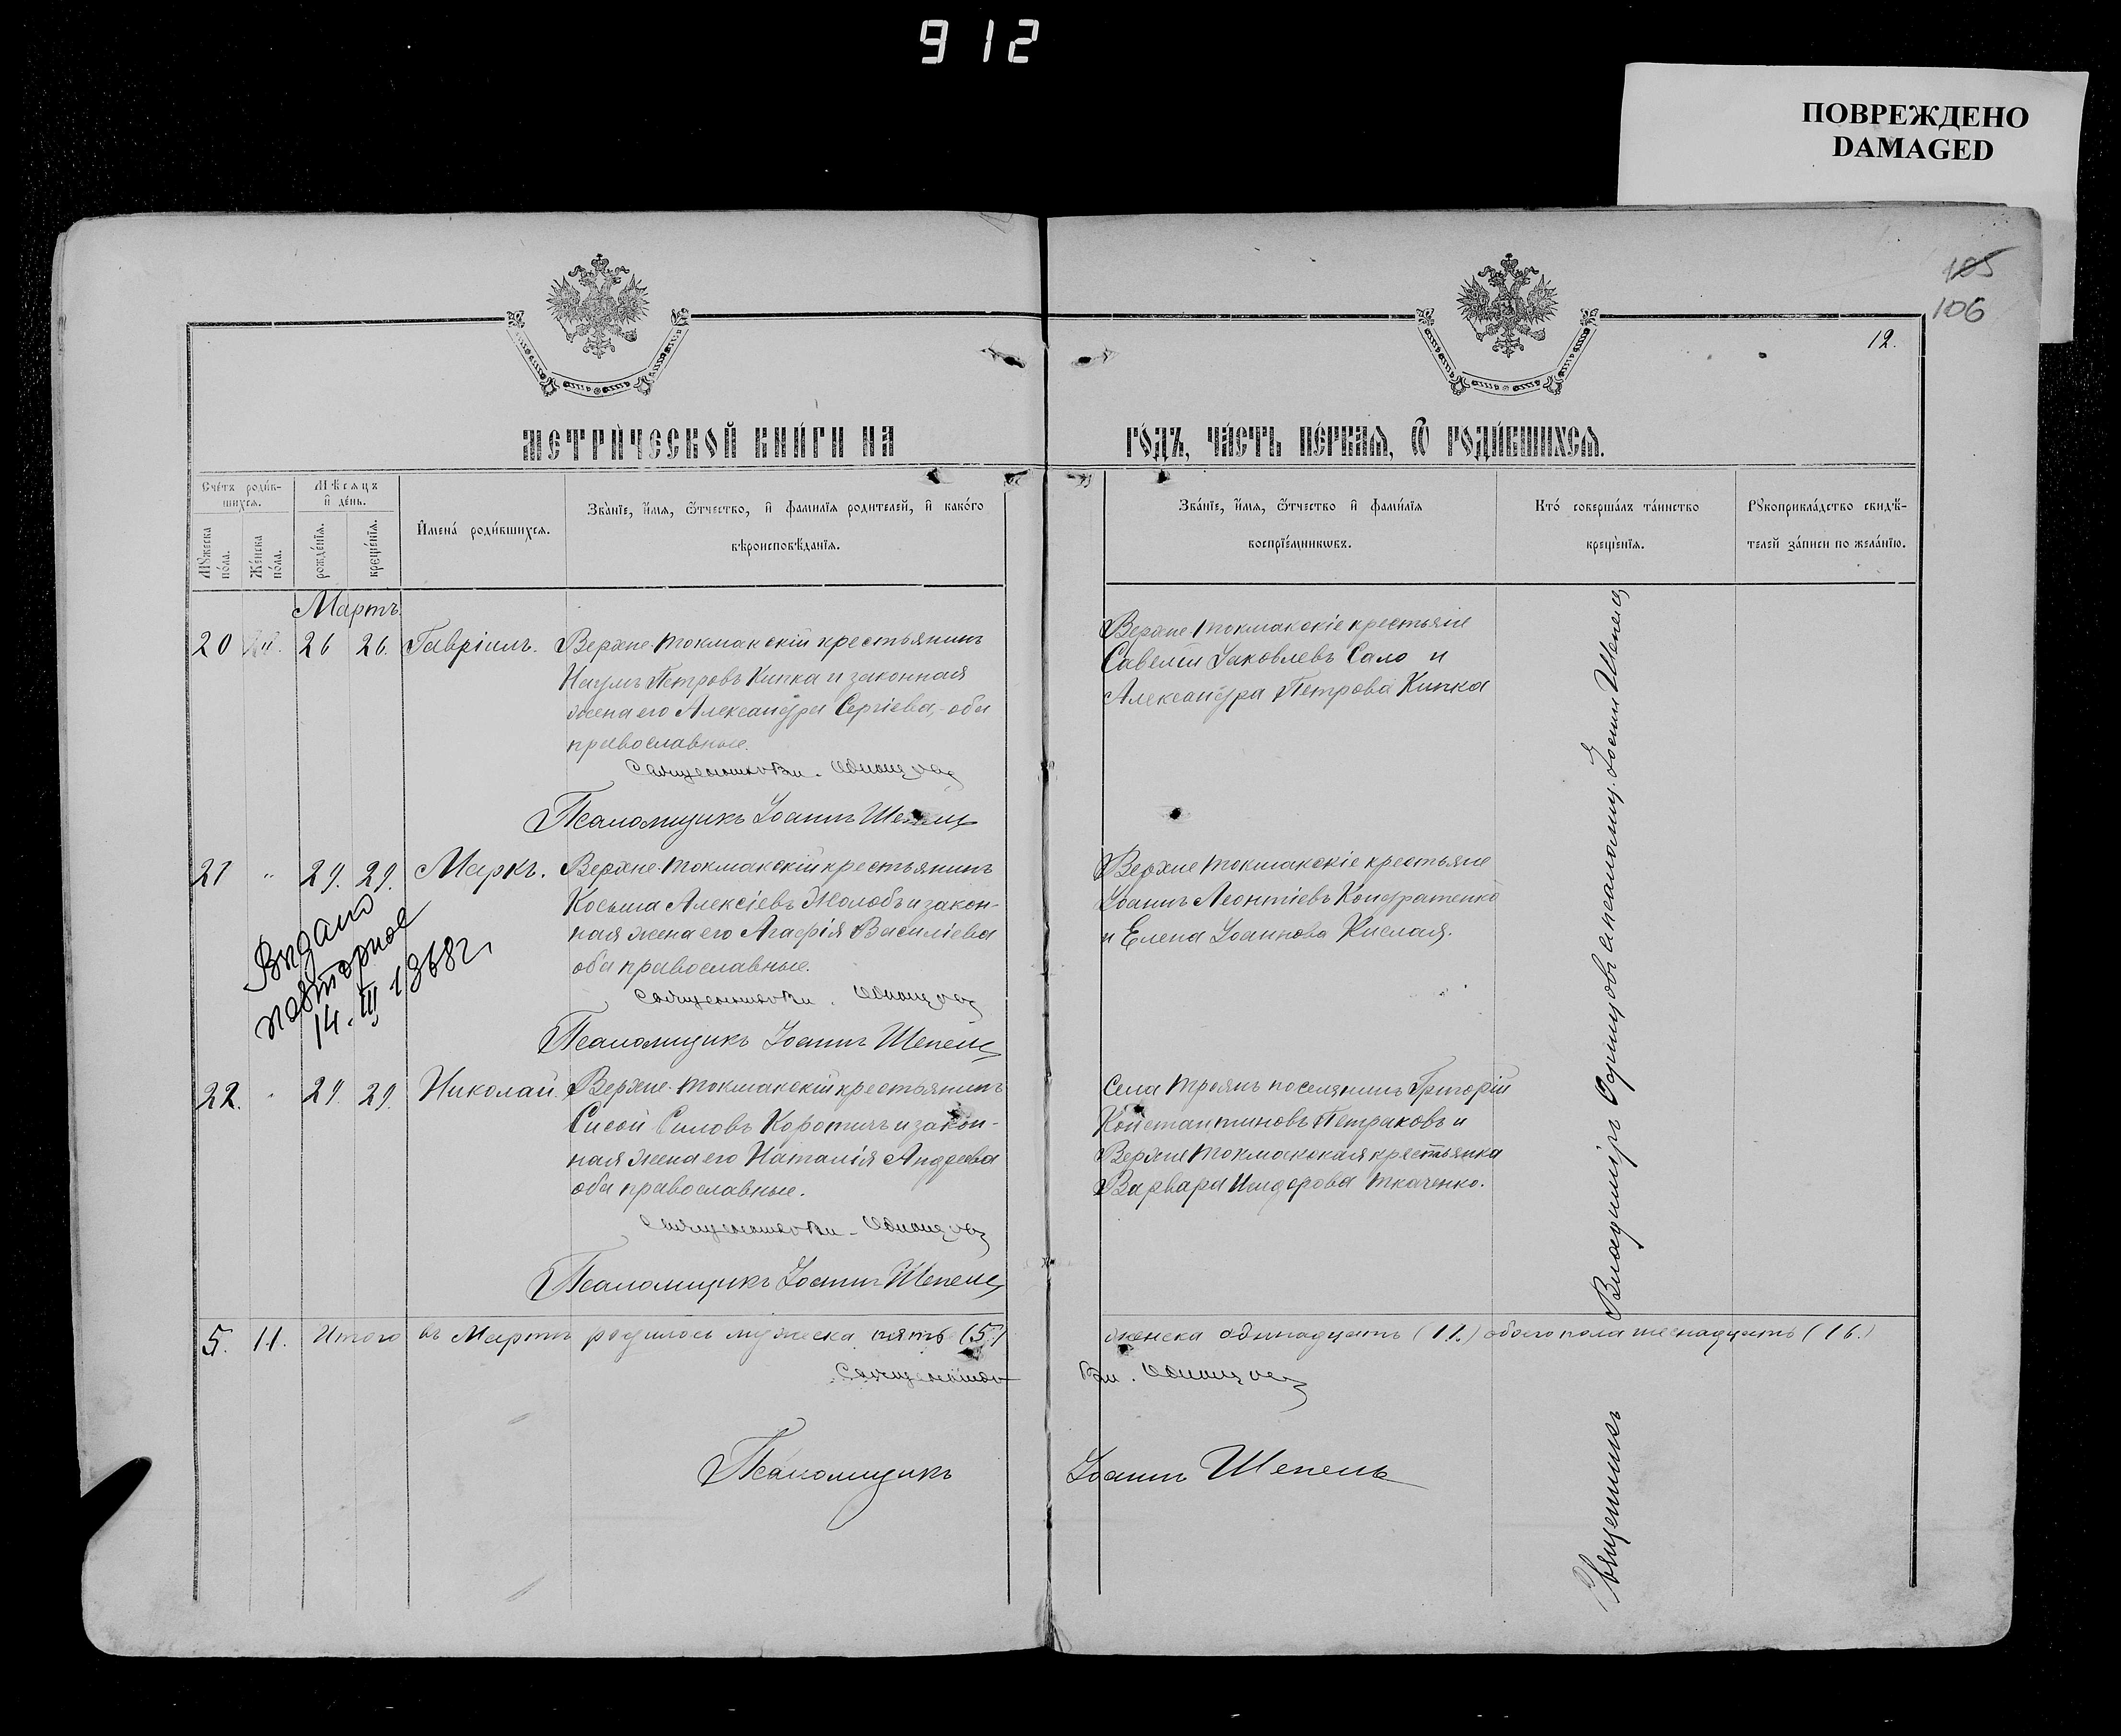 912
ПОВРЕЖДЕНО
DAMAGED
105
106
12.
МЕТРИ́ЧЕСКОЙ КНИ́ГИ НА
ГО́ДЪ, ЧА́СТЬ ПЕ́РВАЯ, Ѿ РОДИ́ВШИХСЯ.
Сче́тъ роди́в-
шихся.
Мѣ́сяцъ
и҆ де́нь.
Мꙋ́жеска
по́ла.
Же́нска
по́ла.
рожде́нїя.
креще́нїя.
И҆мена́ роди́вшихся.
Зва́нїе, и҆́мя, ѻ҆́тчество, и҆ фами́лїя роди́телей, и҆ како́го
вѣроисповѣ́данїя.
Зва́нїе, и҆́мя, ѻ҆́тчество и҆ фами́лїя
воспрїе́мниковъ.
Кто́ соверша́лъ та́инство
креще́нїя.
Рꙋкоприкла́дство свидѣ́-
телей за́писи по жела́нїю.
Мартъ
20 26 26. Гавріилъ. Верхне-Токмакскій крестьянинъ
Наумъ Петровъ Кипка и законная
жена его Александра Сергіева,- оба
православные.
Псаломщикъ Іоаннъ Шепель
Верхне Токмакскіе крестьяне
Савелій Іаковлевъ Сало и
Александра Петрова Кипка
21 " 29. 29. Маркъ. Верхне-Токмакскій крестьянинъ
Косьма Алексіевъ Жолобъ и закон-
ная жена его Агафія Василіева
оба православные.
Псаломщикъ Іоаннъ Шепель
Верхне Токмакскіе крестьяне
Іоаннъ Леонтіевъ Кондратенко
и Елена Іоаннова Кислая.
Выдано
повторное
14. III 1968 г.
22. " 29. 29. Николай. Верхне-Токмакскій крестьянинъ
Сисой Силовъ Коротичъ и закон-
ная жена его Наталія Андреева
оба православные.
Псаломщикъ Іоаннъ Шепель
Села Троянъ поселянинъ Григорій
Константиновъ Петраковъ и
Верхне Токмакская крестьянка
Варвара Исидорова Ткаченко.
5. 11. Итого въ Мартѣ родилось мужеска пять (5.)
женска одиннадцать (11.) обоего пола шеснадцать (16.)
Псаломщикъ
Іоаннъ Шепель
Священникъ Владиміръ Одинцовъ с псаломщ. Іоанн Шепель